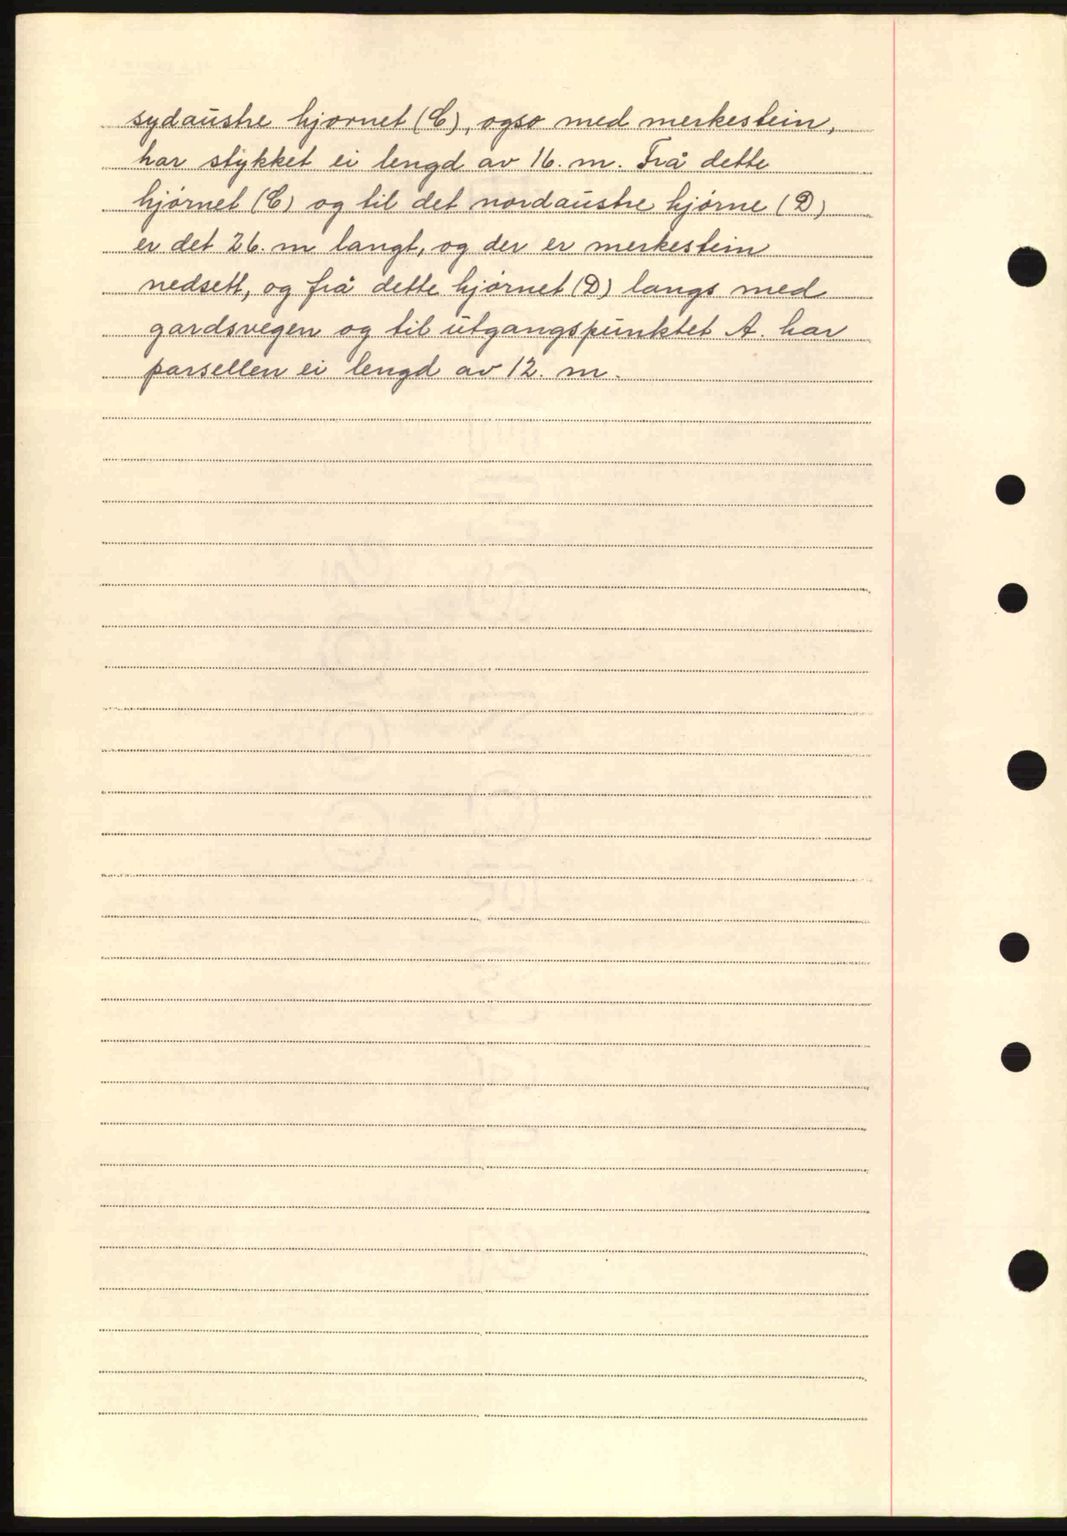 sydaustre hjørnet (C), også med merkestein,
har stykket ei lengd av 16. m. Frå dette
hjørnet (C) og til det nordaustre hjørne (D)
er det 26. m langt, og der er merkestein
nedsett, og frå dette hjørnet (D) langs med
gardsvegen og til utgangspunktet A. har
parsellen ei lengd av 12. m.